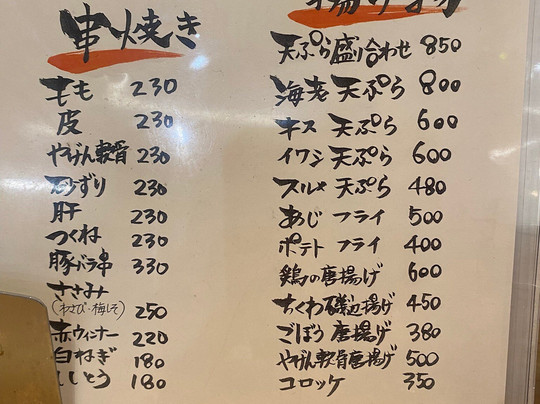 串焼き
もも 230
皮 230
やげん軟骨 230
砂ずり 230
肝 230
つくね 230
豚バラ串 330
ささみ
(わさび・梅しそ) 250
赤ウィンナー 220
白ねぎ 180
ししとう 180
揚げ物
天ぷら盛り合わせ 850
海老天ぷら 800
キス天ぷら 600
イワシ天ぷら 600
スルメ天ぷら 480
あじフライ 500
ポテトフライ 400
鶏の唐揚げ 600
ちくわ磯辺揚げ 450
ごぼう唐揚げ 380
やげん軟骨唐揚げ 500
コロッケ 350